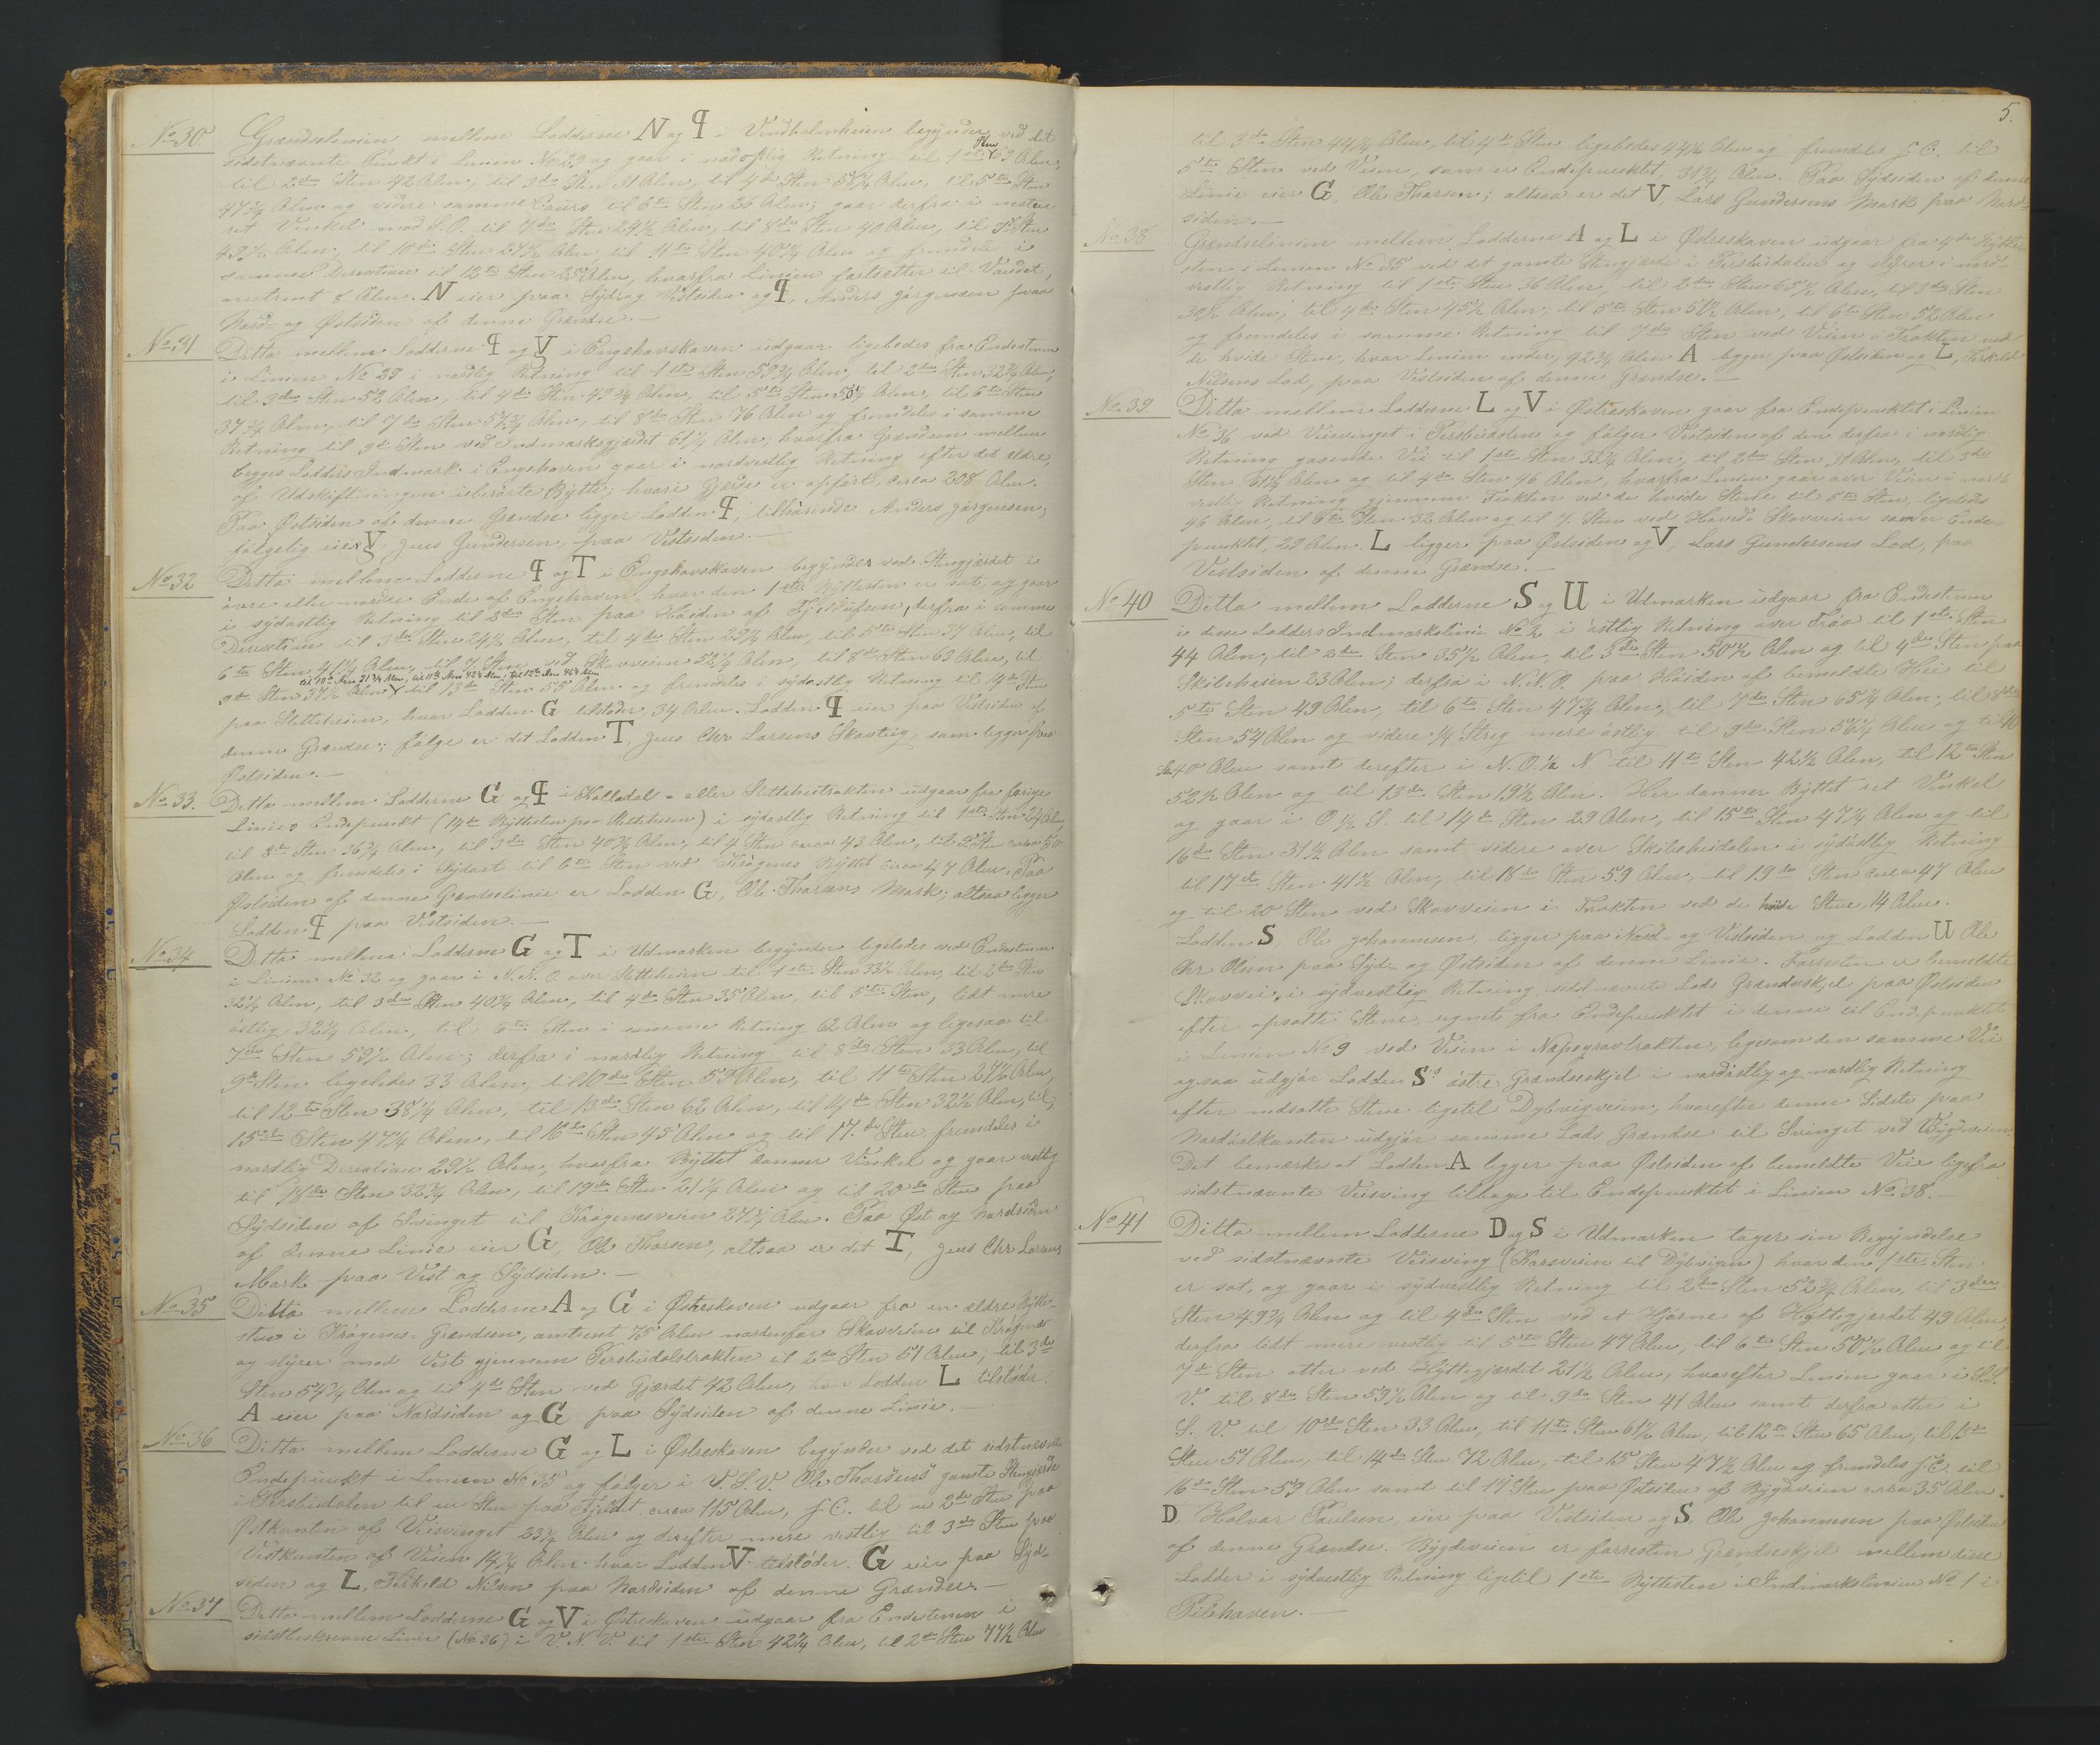 No 30 Grændselinien mellem Lodderne N og P i Vindholmheien begynder ved det
sidstnævnte Punkt i Linien No 29 og gaar i nordostlig Retning til 1ste Sten 63 Alen,
til 2den Sten 42 Alen, til 3die Sten 31 Alen, til 4de Sten 58½ Alen, til 5te Sten
47¾ Alen og videre samme Cours til 6te Sten 26 Alen; gaar derfra i næsten
ret Vinkel mod S.O. til 7de Sten 24½ Alen, til 8de Sten 40 Alen, til 9de Sten
49½ Alen, til 10de Sten 27½ Alen, til 11te Sten 40¼ Alen og fremdeles i
samme Direction til 12te Sten 25 Alen, hvorfra Linien fortsætter til Vandet,
omtrent 8 Alen. N eier paa Syd og Vestsiden og P, Anders Jørgensen paa
Nord- og Østsiden af denne Grændse. —
No 31 Ditto mellem Lodderne P og V i Engehavskoven udgaar ligeledes fra Endestenen
i Linien No 29 i nordlig Retning til 1ste Sten 59¾ Alen, til 2den Sten 32¾ Alen,
til 3die Sten 52 Alen, til 4de Sten 49¾ Alen, til 5te Sten 50 Alen, til 6te Sten
37¾ Alen, til 7de Sten 57¾ Alen, til 8de Sten 76 Alen og fremdeles i samme
Retning til 9de Sten ved Indmarksgjærdet 61¼ Alen; hvorfra Grændsen mellem
begges Lodders Indmark i Engehaven gaar i nordvestlig Retning efter det ældre,
af Udskiftningen uberørte Bytte; hvori Gjerde er opført, circa 208 Alen.
Paa Østsiden af denne Grændse ligger Lodden P, tilhørende Anders Jørgensen;
følgelig eier V, Jens Gundersen, paa Vestsiden. —
No 32 Ditto mellem Lodderne P og T i Engehavskoven begynder ved Stengjærdet i
øvre eller nordre Ende af Engehaven, hvor den 1ste Byttesten er sat, og gaar
i sydostlig Retning til 2den Sten paa Høiden af , derfra i samme
Direction til 3die Sten 24½ Alen, til 4de Sten 29¼ Alen, til 5te Sten 37 Alen, til
6te Sten 41½ Alen, til 7. Sten ved Skovveien 52½ Alen, til 8de Sten 63 Alen, til
til 10de Sten 31¾ Alen, til 11te Sten 42¼ Alen, til 12te Sten 46¼ Alen
9de Sten 37½ Alen til 13de Sten 35 Alen og fremdeles i sydostlig Retning til 14de Sten
paa Stetteheien, hvor Lodden G tilstøder, 34 Alen. Lodden P eier paa Vestsiden af
denne Grændse; følge er det Lodden T, Jens Chr Larsens Skovteig, som ligger paa
Østsiden. —
No 33. Ditto mellem Lodderne G og P i Holledal- eller Stetteheitrakten udgaar fra forige
Linies Endepunkt (14de Byttesten paa Stetteheien) i sydostlig Retning til 1ste Sten 24 Alen,
til 2den Sten 36¾ Alen, til 3die Sten 40¾ Alen, til 4 Sten circa 43 Alen, til 5te Sten circa 50
Alen og fremdeles i Sydost til 6te Sten ved Krøgenes Byttet circa 47 Alen. Paa
Østsiden af denne Grændselinie er Lodden G, Ole Thorsens Mark; altsaa ligger
Lodden P paa Vestsiden. —
No 34 Ditto mellem Lodderne G og T i Udmarken begynder ligeledes ved Endestenen
i Linien No 32 og gaar i N.N.O. over Stetteheien til 1ste Sten 33½ Alen, til 2den Sten
32¼ Alen, til 3die Sten 40¾ Alen, til 4de Sten 35 Alen, til 5te Sten, lidt mere
østlig, 32¼ Alen, til 6te Sten i samme Retning 62 Alen og ligesaa til
7de Sten 59½ Alen; derfra i nordlig Retning til 8de Sten 33 Alen, til
9de Sten ligeledes 33 Alen, til 10de Sten 59 Alen, til 11te Sten 27½ Alen,
til 12te Sten 38¼ Alen, til 13de Sten 62 Alen, til 14de Sten 32½ Alen, til
15de Sten 47¼ Alen, til 16de Sten 45 Alen og til 17. de Sten fremdeles i
nordlig Direction 29½ Alen, hvorfra Byttet danner Vinkel og gaar vestlig
til 18de Sten 32¾ Alen, til 19de Sten 21¼ Alen og til 20de Sten paa
Sydsiden af Svinget til Krøgenesveien 27¾ Alen. Paa Øst og Nordsiden
af denne Linie eier G, Ole Thorsen, altsaa er det T, Jens Chr Larsens
Mark paa Vest og Sydsiden. —
No 35 Ditto mellem Lodderne A og G i Østreskoven udgaar fra en ældre Bytte-
sten i Krøgenes-Grændsen, omtrent 75 Alen nordenfor Skovveien til Krøgenes
og styrer mod Vest gjennem Tersbudalstrakten til 2den Sten 51 Alen, til 3die
Sten 54¾ Alen og til 4de Sten ved Gjærdet 42 Alen, hvor Lodden L tilstøder.
A eier paa Nordsiden og G paa Sydsiden af denne Linie. —
No 36 Ditto mellem Lodderne G og L i Østreskoven begynder ved det sidstnævnte
Endepunkt i Linien No 35 og følger i V.S.V. Ole Thorsens gamle Stengjærde
i Tersbudalen til en Sten paa Fjeldet circa 115 Alen, f.C. til en 2den Sten paa
Østkanten af Veisvinget 23½ Alen og derefter mere vestlig til 3die Sten paa
Vestkanten af Veien 14¾ Alen hvor Lodden V tilstøder. G eier paa Syd-
siden og L, Terkild Nilsen paa Nordsiden af denne Grændse. —
No 37 Ditto mellem Lodderne G og V i Østreskoven udgaar fra Endestenen i
sidstbeskrevne Linie (No 36) i V.N.V. til 1ste Sten 42¼ Alen, til 2den Sten 77½ Alen
5.
til 3die Sten 44½ Alen, til 4de Sten ligeledes 44½ Alen og fremdeles f.C. til
5te Sten ved Veien, som er Endepunktet, 31¾ Alen. Paa Sydsiden af denne
Linie eier G, Ole Thorsen; altsaa er det V, Lars Gundersens Mark paa Nord-
siden. —
No 38 Grændselinien mellem Lodderne A og L i Østreskoven udgaar fra 4de Bytte-
sten i Linien No 35 ved det gamle Stengjærde i Tersbudalen og styrer i nord-
vestlig Retning til 1ste Sten 36 Alen, til 2den Sten 65½ Alen, til 3die Sten
30½ Alen, til 4de Sten 45½ Alen, til 5te Sten 51½ Alen, til 6te Sten 52 Alen
og fremdeles i samme Retning til 7de Sten ved Veien i Trakten ved
de hvide Stene, hvor Linien ender, 42¾ Alen. A ligger paa Østsiden og L, Terkild
Nilsens Lod, paa Vestsiden af denne Grændse. —
No 39 Ditto mellem Lodderne L og V i Østreskoven gaar fra Endepunktet i Linien
No 36 ved Veisvinget i Tersbudalen og følger Vestsiden af den derfra i nordlig
Retning gaaende Vei til 1ste Sten 33¼ Alen, til 2den Sten 31 Alen, til 3die
Sten 61½ Alen og til 4de Sten 46 Alen, hvorfra Linien gaar over Veien i nord-
vestlig Retning gjennem Trakten ved de hvide Stene til 5te Sten, ligeledes
46 Alen, til 6te Sten 32 Alen og til 7. Sten ved Skovveien som er Ende-
punktet, 29 Alen. L ligger paa Østsiden og V, Lars Gundersens Lod, paa
Vestsiden af denne Grændse. —
No 40 Ditto mellem Lodderne S og U i Udmarken udgaar fra Endestenen
i disse Lodders Indmarkslinie No 2 i østlig Retning over Traa til 1ste Sten
44 Alen, til 2den Sten 35½ Alen, til 3die Sten 50½ Alen og til 4de Sten paa
Skibeheien 23 Alen; derfra i N.N.O. paa Høiden af bemeldte Hei til
5te Sten 49 Alen, til 6te Sten 47¾ Alen, til 7de Sten 65¼ Alen, til 8de
Sten 54 Alen og videre ¼ Streg mere østlig til 9de Sten 56¼ Alen og til 10
de 40 Alen samt derefter i N.O. ½ N. til 11te Sten 42½ Alen, til 12te Sten
52½ Alen og til 13de Sten 19½ Alen. Her danner Byttet ret Vinkel
og gaar i O ½ S. til 14de Sten 29 Alen, til 15de Sten 47¼ Alen og til
16de Sten 31½ Alen samt videre over Skibeheidalen i sydøstlig Retning
til 17de Sten 41½ Alen, til 18de Sten 59 Alen, til 19de Sten circa 47 Alen
og til 20 Sten ved Skovveien i Trakten ved de hvide Stene, 14 Alen.
Lodden S, Ole Johannesen, ligger paa Nord- og Vestsiden og Lodden U Ole
Chr Olsen paa Syd- og Østsiden af denne Linie. Forresten er bemeldte
Skovvei, i sydvestlig Retning sidstnævnte Lods Grændseskjel paa Østsiden
efter opsatte Stene, regnet fra Endepunktet i denne til Endepunktet
i Linien No 9 ved Veien i Næpegravtrakten, ligesom den samme Vei
ogsaa udgjør Lodden S's østre Grændseskjel i nordøstlig og nordlig Retning
efter nedsatte Stene ligetil Dybvigveien, hvorefter denne Sidste paa
Nordøstkanten udgjør samme Lods Grændse til Svinget ved Bygdeveien.
Det bemærkes at Lodden A ligger paa Østsiden af bemeldte Vei ligefra
sidstnævnte Veisving tilbage til Endepunktet i Linien No 38.
No 41 Ditto mellem Lodderne D og S i Udmarken tager sin Begyndelse
ved sidstnævnte Veisving (Korsveien til Dybvigen) hvor den 1ste Sten
er sat, og gaar i sydvestlig Retning til 2den Sten 52¾ Alen, til 3die
Sten 49¾ Alen og til 4de Sten ved et Hjørne af Hyttegjærdet 49 Alen,
derfra lidt mere vestlig til 5te Sten 47 Alen, til 6te Sten 50½ Alen og til
7de Sten atter ved Hyttegjærdet 21½ Alen, hvorefter Linien gaar i S.S.
V. til 8de Sten 59½ Alen og til 9de Sten 41 Alen samt derfra atter i
S.V. til 10de Sten 33 Alen, til 11te Sten 61½ Alen, til 12te Sten 65 Alen, til 13de
Sten 51 Alen, til 14de Sten 72 Alen, til 15 Sten 47½ Alen og fremdeles f.C. til
16de Sten 59 Alen samt til 17 Sten paa Østsiden af Bygdeveien circa 35 Alen.
D, Halvor Paulsen, eier paa Vestsiden og S, Ole Johannesen paa Østsiden
af denne Grændse. Bygdeveien er forresten Grændseskjel mellem disse
Lodder i sydvestlig Retning ligetil 1ste Byttesten i Indmarkslinien No 1 i
Pilehaven. —